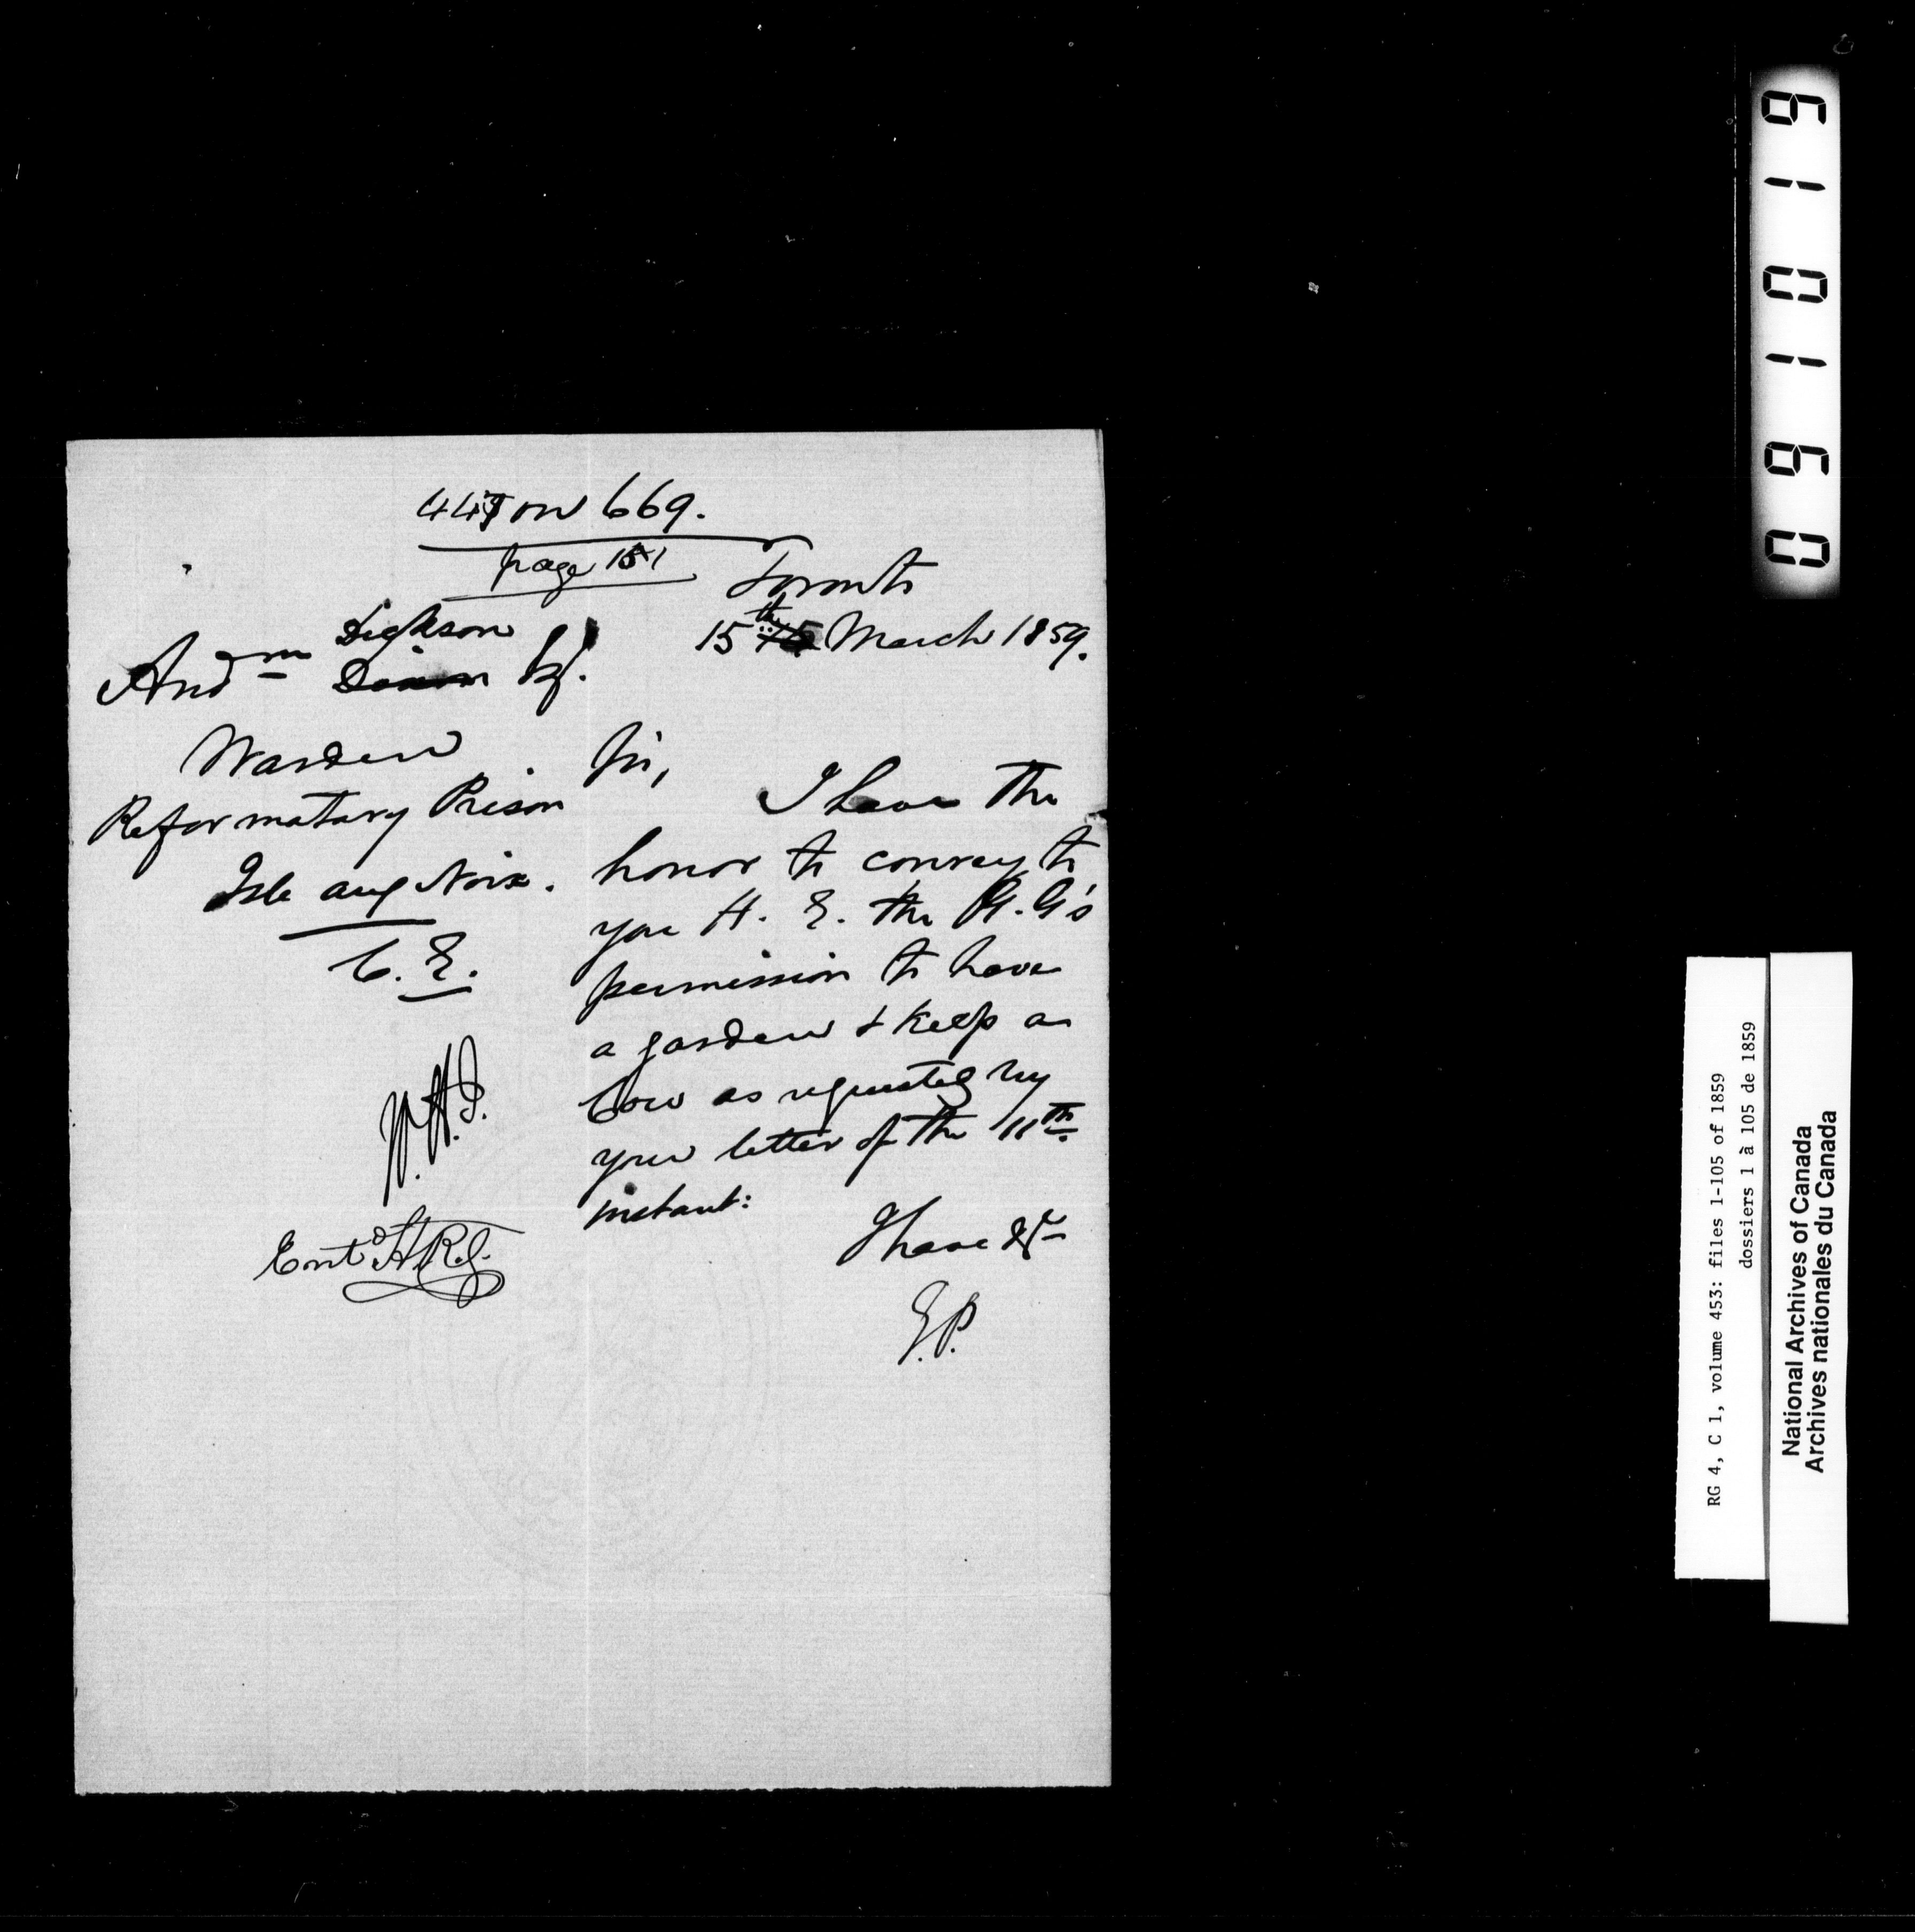 447 on 669.
page 151
Toronto
15th March 1859.
Andm Dickson
Dixon Esq.
Warden
Reformatory Prison
Isle aux Noix.
C. E.
Sir,
I have the
honor to convey to
you H. E. the G. G's
permission to have
a garden & keep a
Cow as requested by
your letter of the 11th
instant:
I have &c
E.P.
Entd H.R.J.
RG 4, C 1, volume 453: files 1-105 of 1859
dossiers 1 à 105 de 1859
National Archives of Canada
Archives nationales du Canada
061019